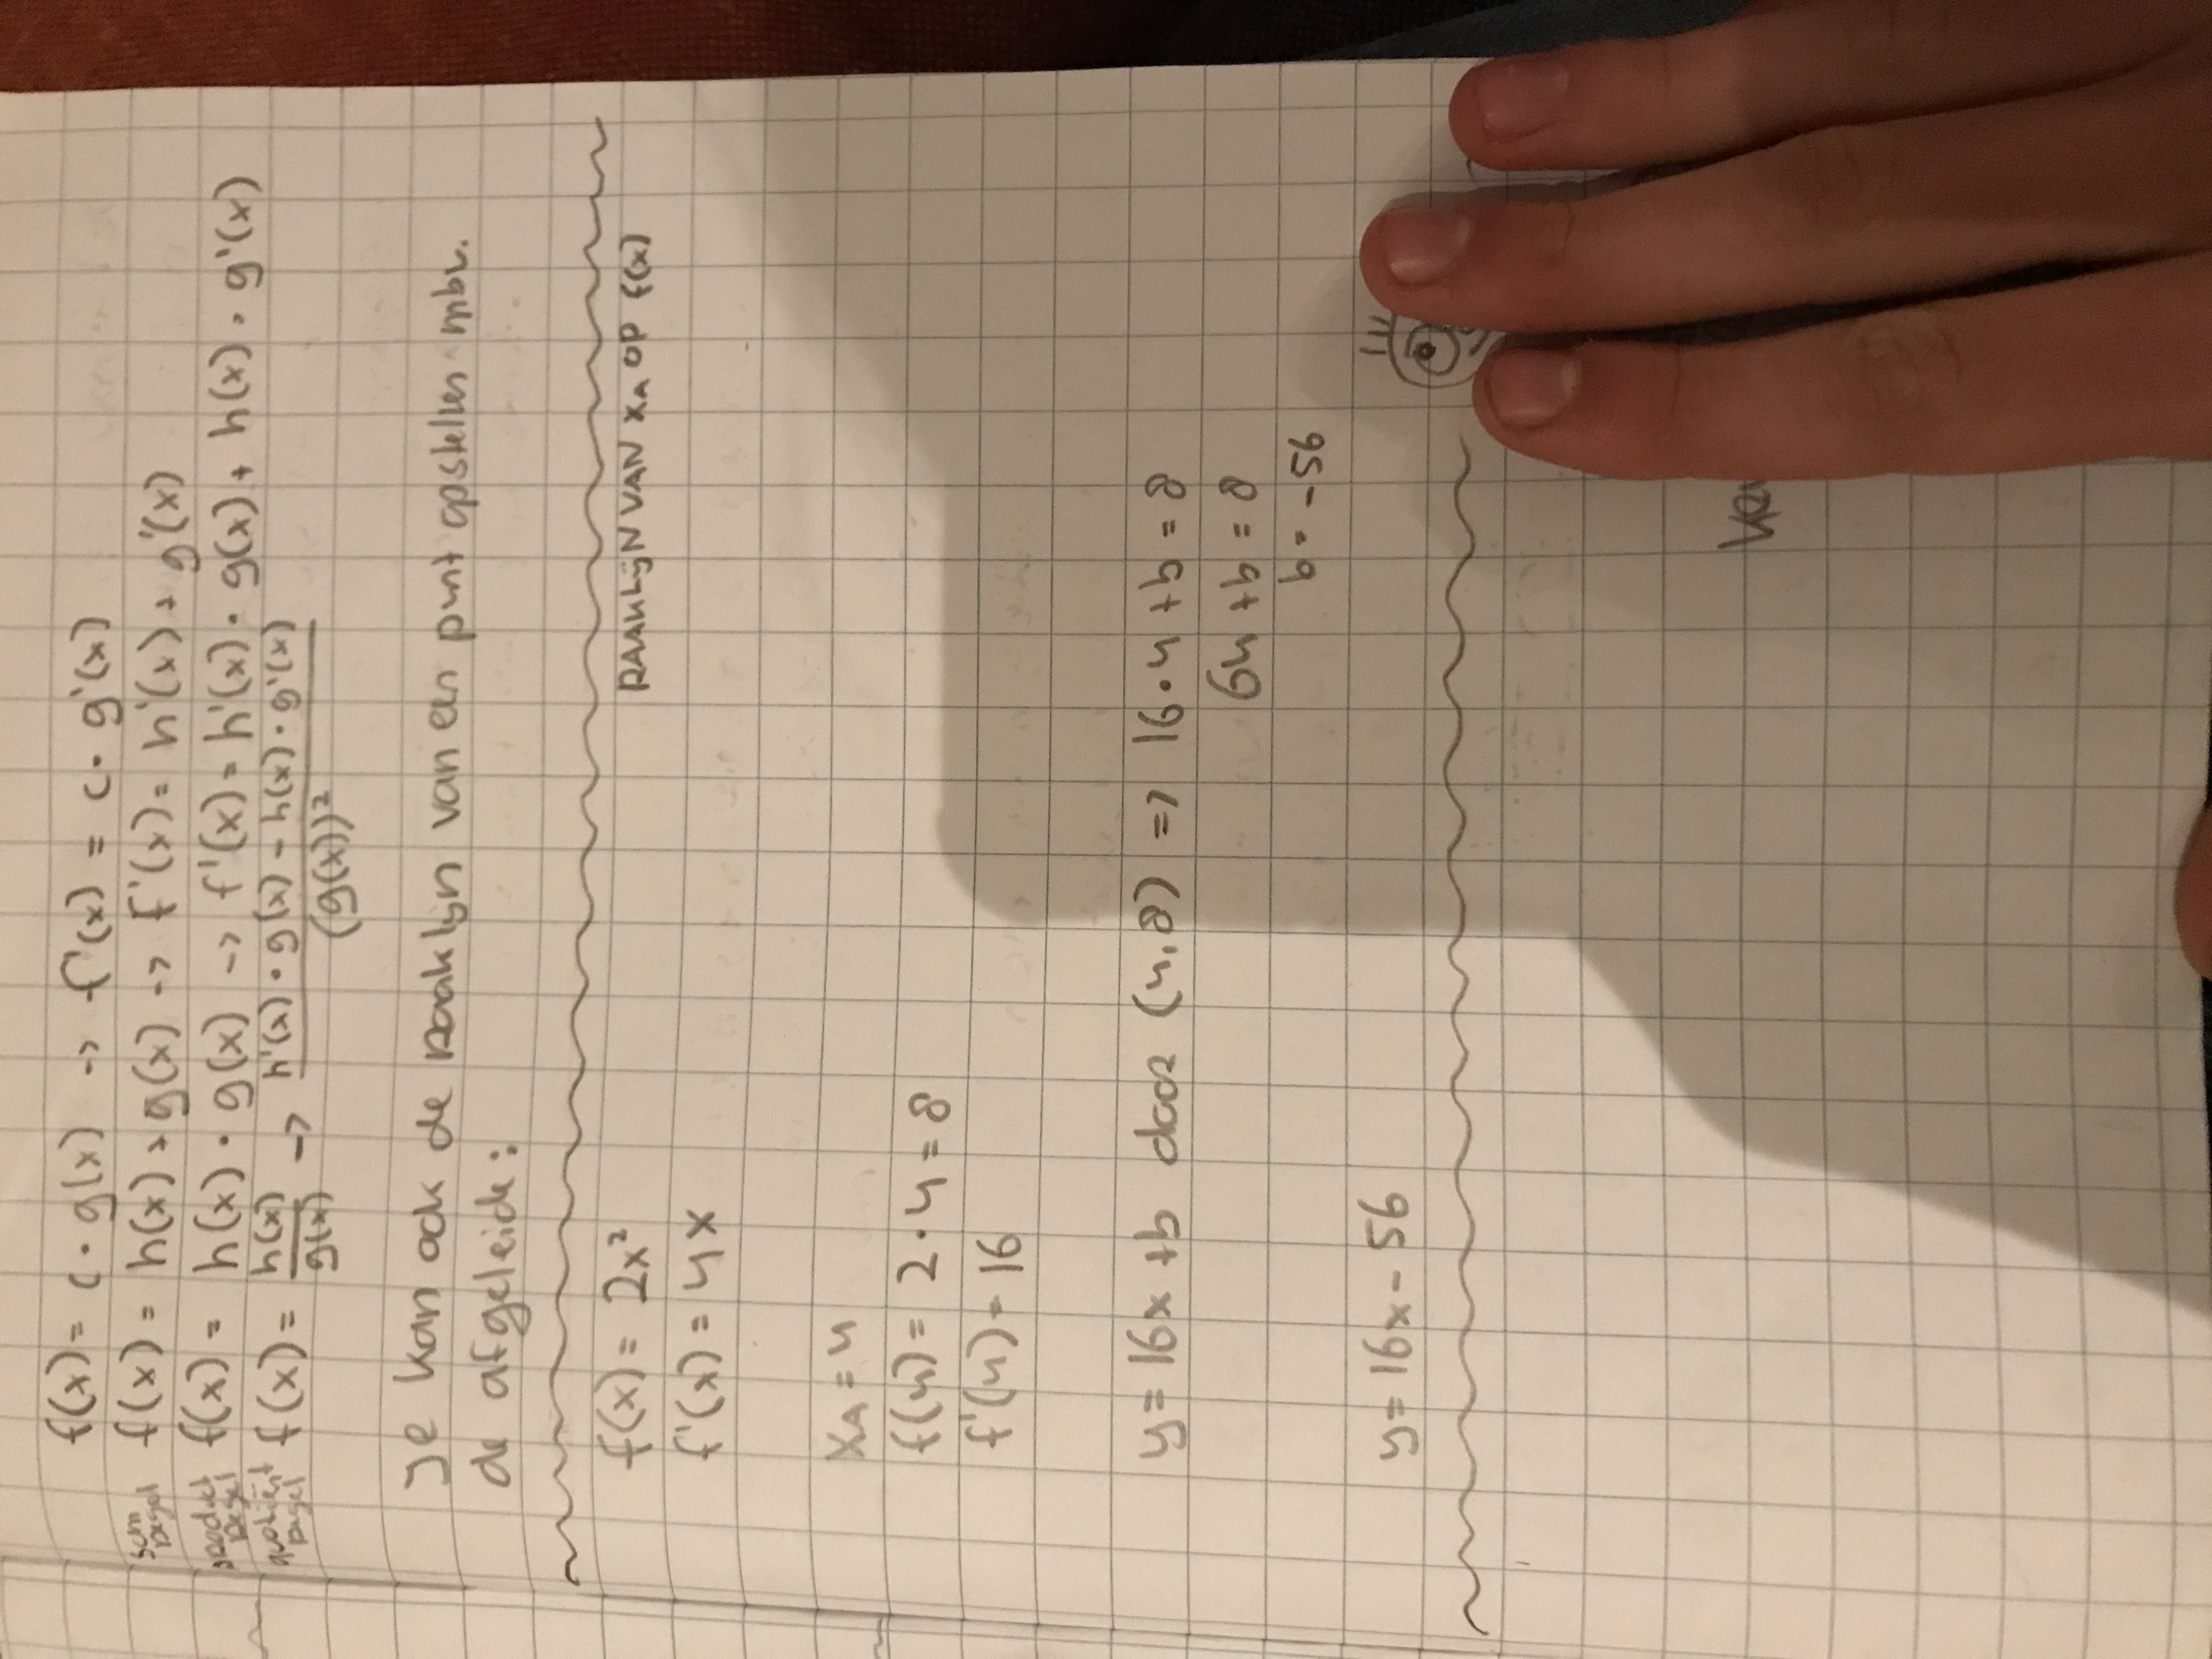 f(x) = c · g(x) → f'(x) = c · g'(x)
som regel f(x) = h(x) + g(x) → f'(x) = h'(x) + g'(x)
product regel f(x) = h(x) · g(x) → f'(x) = h'(x) · g(x) + h(x) · g'(x)
quotiënt regel f(x) = h(x)/g(x) → h'(x) · g(x) - h(x) · g'(x)/(g(x))²
Je kan ook de raaklijn van een punt opstellen mbv.
de afgeleide:
f(x) = 2x² RAAKLIJN VAN xA OP f(x)
f'(x) = 4x
xA = 4
f(4) = 2 · 4 = 8
f'(4) = 16
y = 16x + b door (4,8) => 16 · 4 + b = 8
64 + b = 8
b = -56
y = 16x - 56